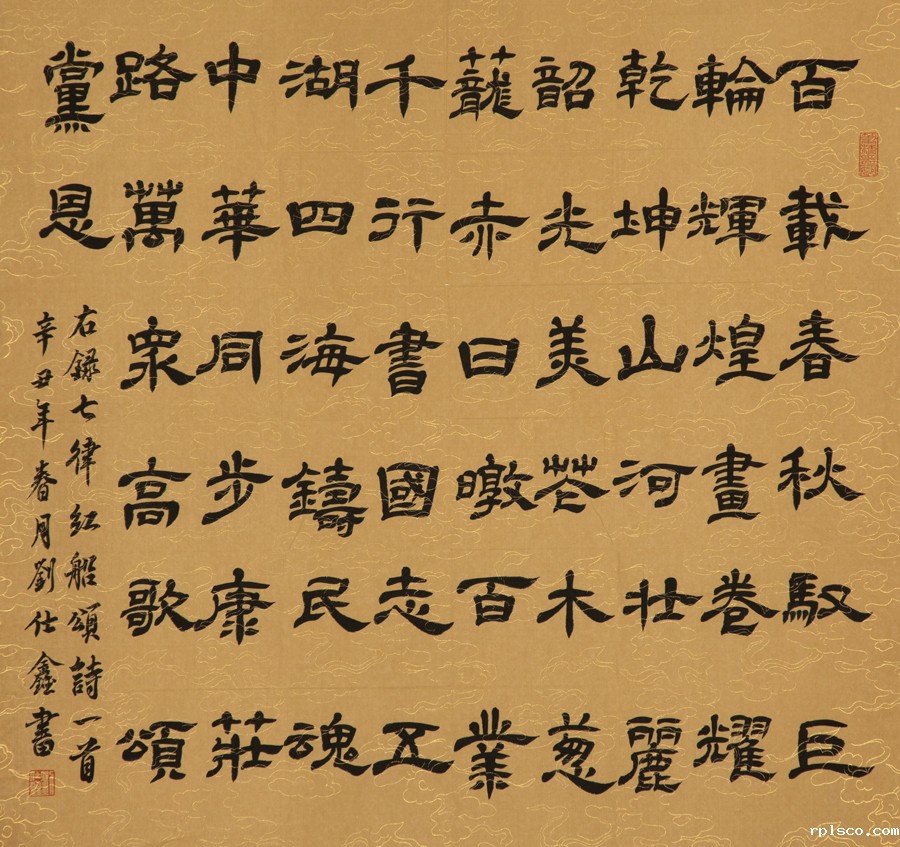 百載春秋馭巨
輪輝煌畫卷耀
乾坤山河壯麗
韶光美花木葱
蘢赤日暾百業
千行書國志五
湖四海鑄民魂
中華同步康莊
路萬眾高歌頌
黨恩
右録七律紅船頌詩一首
辛丑年春月劉仕鑫書
rplsco.com